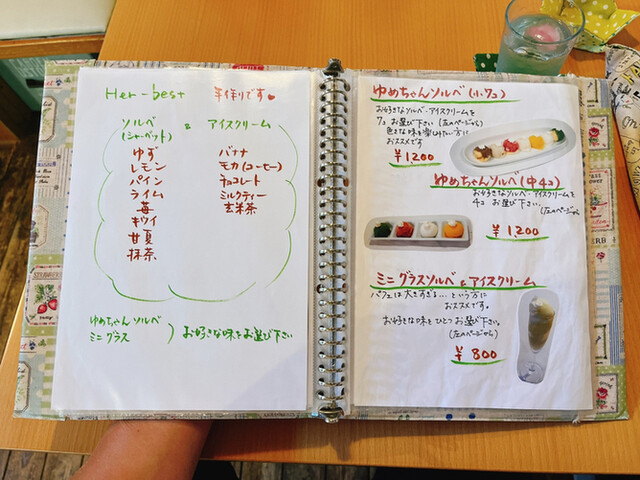 Her-best 手作りです
ソルベ & アイスクリーム
(シャーベット)
ゆず
レモン
パイン
ライム
苺
キウイ
甘夏
抹茶
バナナ
モカ(コーヒー)
チョコレート
ミルクティー
玄米茶
ゆめちゃんソルベ
ミニグラス
お好きな味をお選び下さい
ゆめちゃんソルベ(小・7コ)
お好きなソルベ・アイスクリームを
7コ お選び下さい(左のページから)
色々な味を楽しみたい方に
おススメです
¥1,200
ゆめちゃんソルベ(中4コ)
お好きなソルベ・アイスクリームを
4コ お選び下さい。
(左のページから
¥1,200
ミニグラスソルベ&アイスクリーム
パフェは大きすぎる…という方に
おススメです。
お好きな味をひとつお選び下さい。
(左のページから)
¥800